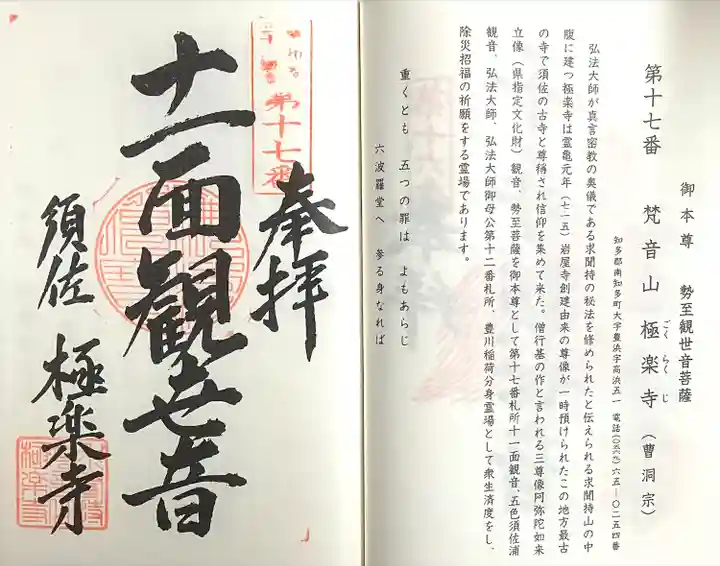 御本尊 勢至観世音菩薩
第十七番 梵音山 極楽寺（曹洞宗）
ごく らく じ
知多郡南知多町大字豊浜字高浜五一 電話（〇五六九）六五―〇二五四番
弘法大師が真言密教の奥儀である求聞持の秘法を修められたと伝えられる求聞持山の中
腹に建つ極楽寺は霊亀元年（七一五）岩屋寺創建由来の尊像が一時預けられたこの地方最古
の寺で須佐の古寺と尊称され信仰を集めて来た。僧行基の作と言われる三尊像阿弥陀如来
立像（県指定文化財）観音、勢至菩薩を御本尊として第十七番札所十一面観音、五色須佐浦
観音、弘法大師、弘法大師御母公第十二番札所、豊川稲荷分身霊場として衆生済度をし、
除災招福の祈願をする霊場であります。
重くとも 五つの罪は よもあらじ
六波羅堂へ 参る身なれば
第十七番
奉拝
十一面観世音
須佐 極楽寺